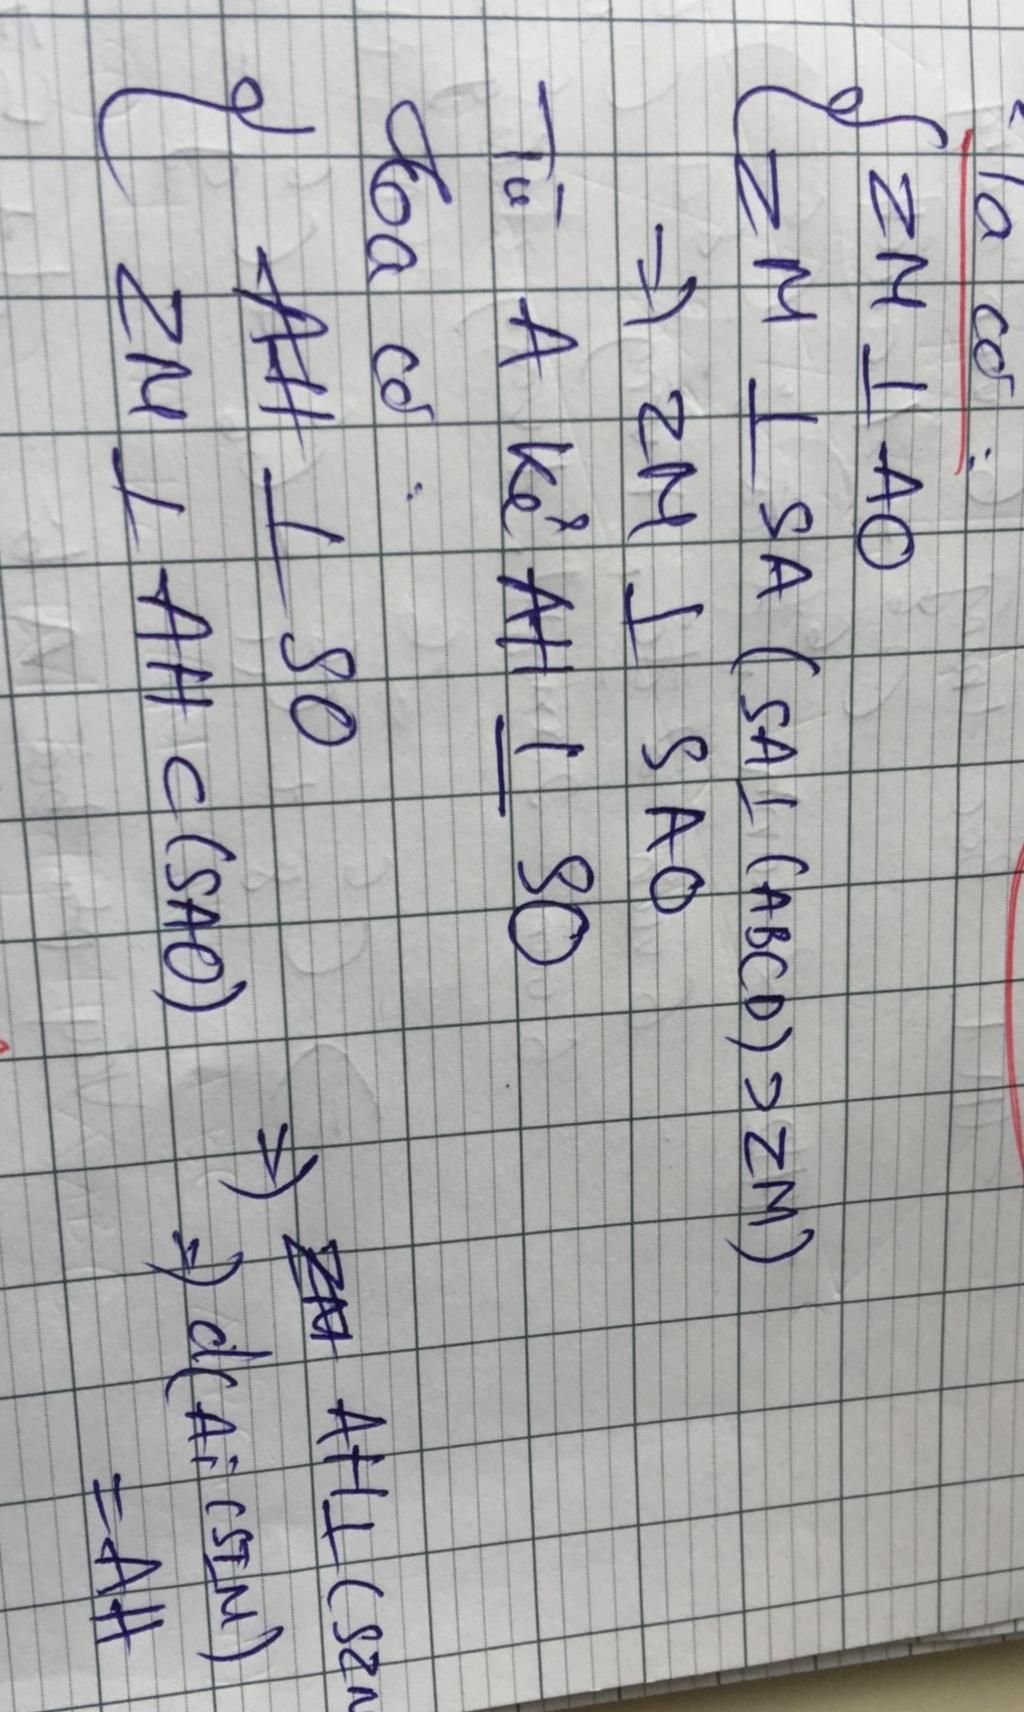 Ta có :
ZM ⊥ AO
ZM ⊥ SA (SA ⊥ (ABCD) ⊃ ZM)
⇒ ZM ⊥ SAO
Từ A kẻ AH ⊥ SO
Ta có :
AH ⊥ SO
ZM ⊥ AH ⊂ (SAO)
⇒ AH ⊥ (SZM
⇒ d(A; (SZM)
= AH